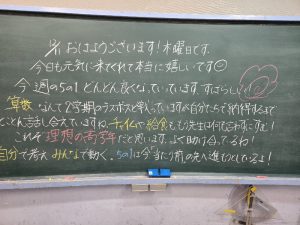 おはようございます！木曜日です。
今日も元気に来てくれて本当に嬉しいです
今週の5の1どんどん良くなっています。すばらしい
算数なんて2学期のラスボスと戦っていますが自分たちで納得するまで
とことん話し合えていますね。チャイムで給食ももう先生は何も言わずに済む！
これぞ理想の高学年だと思います。よく助け合ってるね！
自分で考えみんなで動く。5の1は今当たり前の先へ進もうとしているよ！